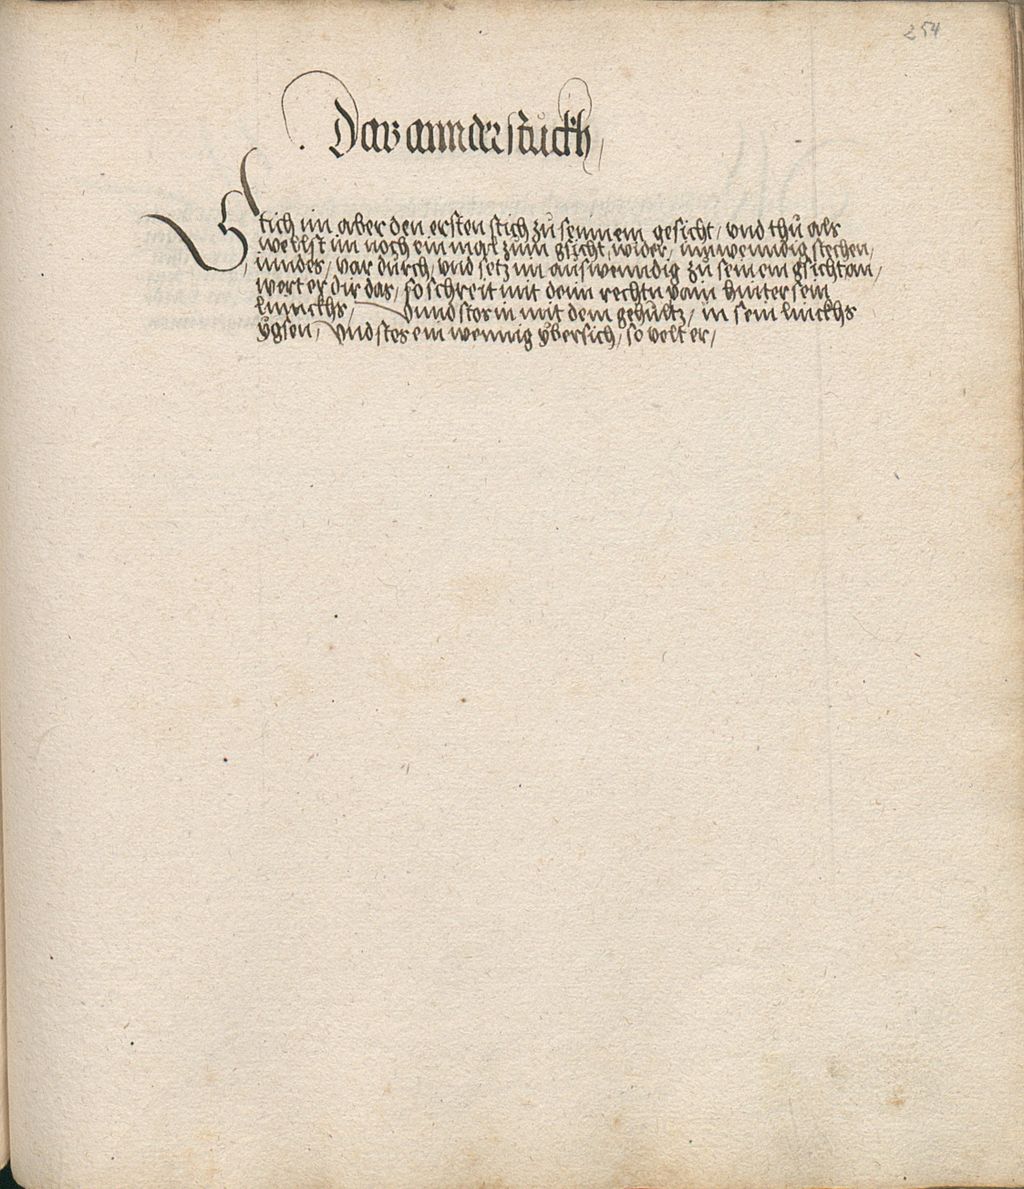 254
Das annder stuckh /
Stich im aber den ersten stich zů seinnem gesicht / vnd thů als
wellst im noch ein mal zum gsicht, wider / inwenndig stechen /
/ inndes / var durch, vnd setz im auswenndig zů seinem gsicht an /
wert er dir das / so schreit mit deim rechtn pain hinter sein
linnckhs / Vnnd stos in mit dem gehültz / in sein linckhs
ÿgsen / Vnd stos ein wennig ÿbersich, so velt er /